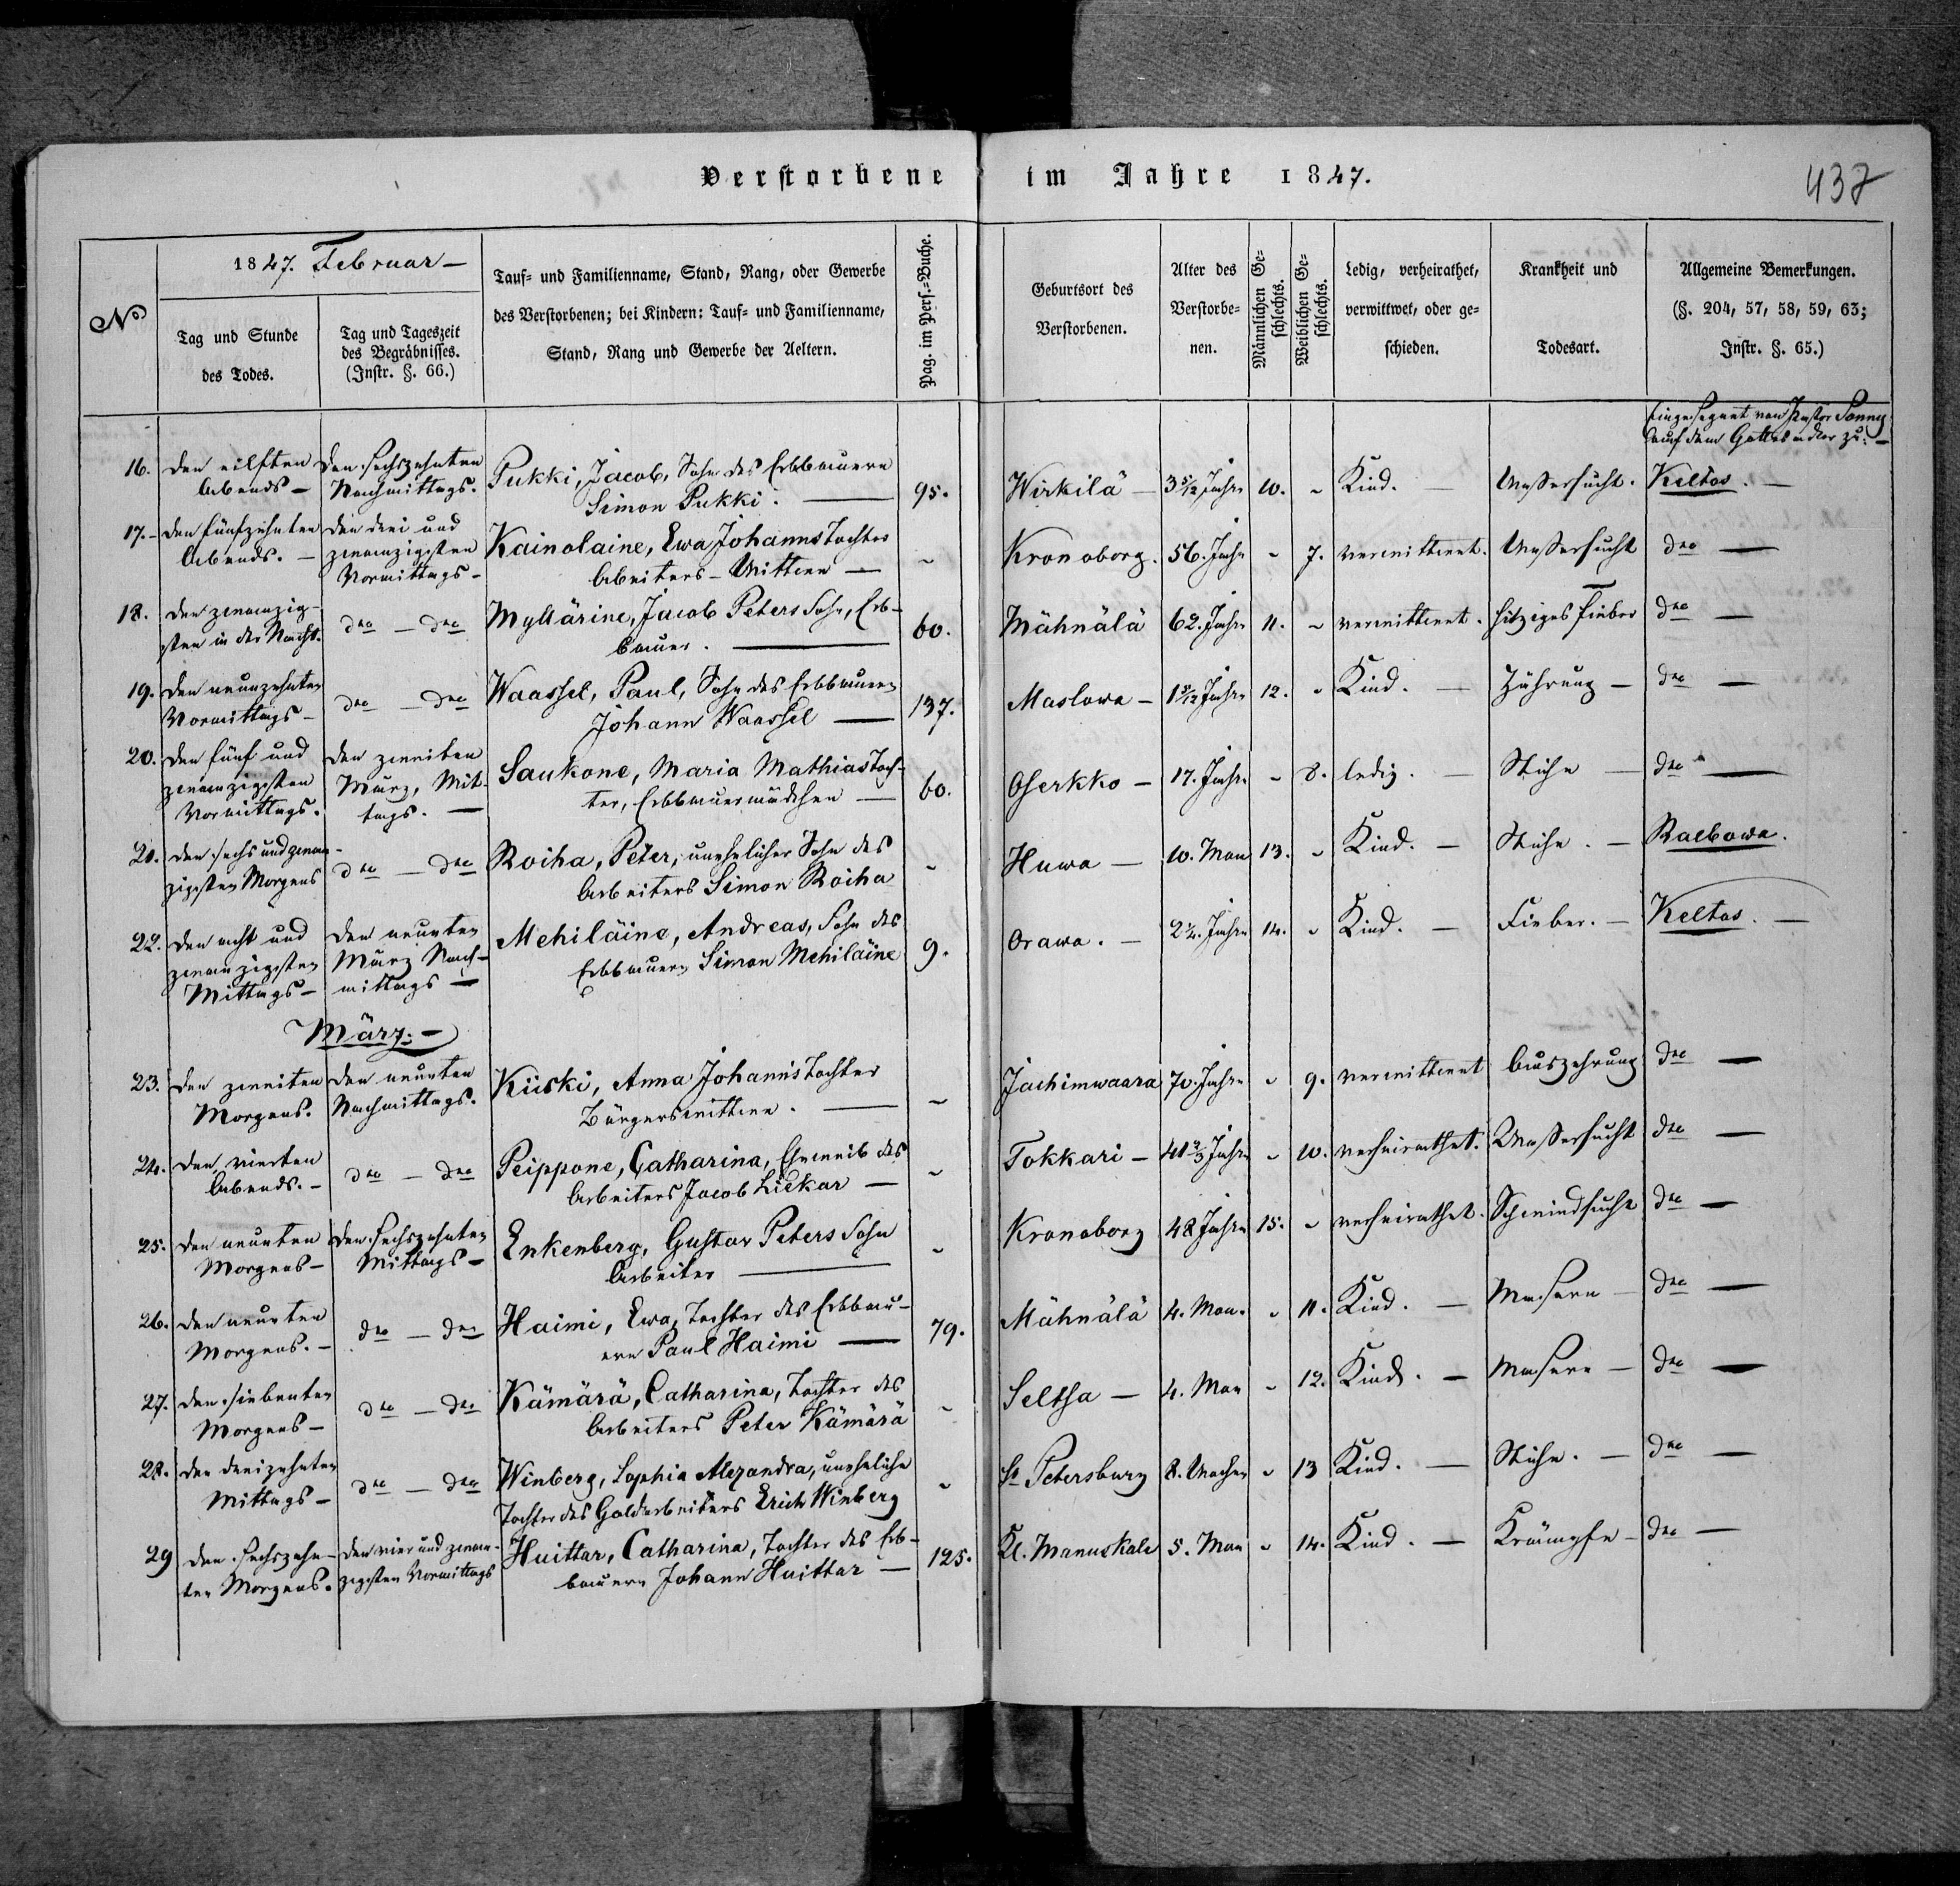 Verstorbene im Jahre 1847.
437
No
1847. Februar —
Tag und Stunde
des Todes.
Tag und Tageszeit
des Begräbnisses.
(Instr. §. 66.)
Tauf- und Familienname, Stand, Rang, oder Gewerbe
des Verstorbenen; bei Kindern: Tauf- und Familienname,
Stand, Rang und Gewerbe der Aeltern.
Pag. im Pers.-Buche.
Geburtsort des
Verstorbenen.
Alter des
Verstorbe-
nen.
Männlichen Ge-
schlechts.
Weiblichen Ge-
schlechts.
Ledig, verheirathet,
verwittwet, oder ge-
schieden.
Krankheit und
Todesart.
Allgemeine Bemerkungen.
(§. 204, 57, 58, 59, 63;
Instr. §. 65.)
Eingesegnet von Pastor Sonny
auf dem Gottesacker zu: —
16. den eilften
Abends —
den sechszehnten
Nachmittags.
Pukki, Jacob, Sohn des Erbbauern
Simon Pukki. —
95. Wirkilä — 3 5/12 Jahre 10. " Kind. — Wassersucht. Keltos. —
17. — den fünfzehnten
Abends. —
den drei und
zwanzigsten
Vormittags —
Kainolaine, Ewa Johanns Tochter
Arbeiters-Wittwe —
" Kronoborg. 56. Jahre " 7. verwittwet. Wassersucht dto —
18. den zwanzig-
sten in der Nacht.
dto — dto
Myllärine, Jacob Peters Sohn, Erb-
bauer. —
60. Mähnälä 62. Jahre 11. " verwittwet. hitziges Fieber dto —
19. den neunzehnten
Vormittags —
dto — dto
Waassel, Paul, Sohn des Erbbauern
Johann Waassel —
137. Maslowa — Jahre 12. " Kind. — Zährung — dto —
20. den fünf und
zwanzigsten
Vormittags.
den zweiten
März, Mit-
tags. —
Saukone, Maria Mathias Toch-
ter, Erbbauermädchen —
60. Oserkko — 17. Jahre " 8. ledig. — Ruhr — dto —
21. den sechs und zwan-
zigsten Morgens
dto — dto
Roiha, Peter, unehelicher Sohn des
Arbeiters Simon Roiha
" Huwa — 10. Mon 13. " Kind. — Ruhr. — Raebowa.
22. den acht und
zwanzigsten
Mittags —
den neunten
März Nach-
mittags —
Mehiläine, Andreas, Sohn des
Erbbauern Simon Mehiläine
9. Orawa. — Jahre 14. " Kind. — Fieber. — Keltos. —
März: —
23. den zweiten
Morgens.
den neunten
Nachmittags.
Küski, Anna Johanns Tochter
Bürgerswittwe. —
" Jachimwaara 70. Jahre " 9. verwittwet Auszehrung dto —
24. den vierten
Abends. —
dto — dto
Peippone, Catharina, Eheweib des
Arbeiters Jacob Liekar —
" Tokkari — 41 2/3 Jahre " 10. verheirathet. Wassersucht dto —
25. den neunten
Morgens —
den sechszehnten
Mittags —
Enkenberg, Gustav Peters Sohn
Arbeiter —
" Kronoborg 48 Jahre 15. " verheirathet. Schwindsucht dto —
26. den neunten
Morgens. —
dto — dto
Haimi, Ewa, Tochter des Erbbau-
ern Paul Haimi —
79. Mähnälä 4. Mon. " 11. Kind. — Masern — dto —
27. den siebenten
Morgens —
dto — dto
Kämärä, Catharina, Tochter des
Arbeiters Peter Kämärä
" Seltsa — 4. Mon " 12. Kind. — Masern — dto —
28. den dreizehnten
Mittags —
dto — dto
Winberg, Sophia Alexandra, uneheliche
Tochter des Goldarbeiters Erich Winberg
" St Petersburg 8. Wochen " 13 Kind. — Ruhr. — dto —
29 den sechszehn-
ten Morgens.
den vier und zwan-
zigsten Vormittags
Huittar, Catharina, Tochter des Erb-
bauern Johann Huittar —
125. Kl. Manuskala 5. Mon " 14. Kind. — Krämpfe — dto —